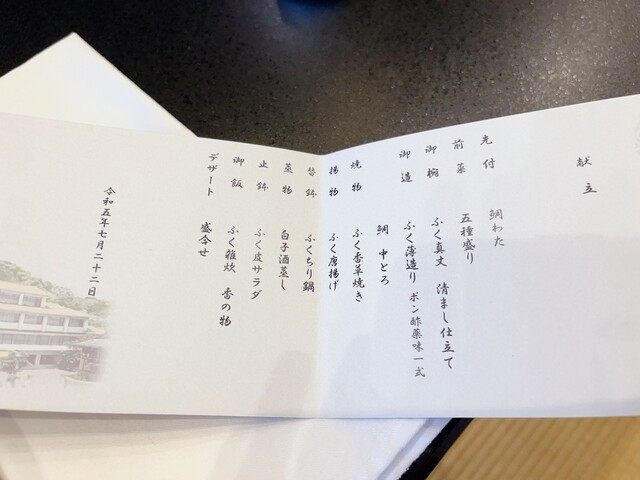 献立
先付 鯛わた
前菜 五種盛り
御椀 ふく真丈 清まし仕立て
御造 ふく薄造り ポン酢薬味一式
鯛 中とろ
焼物 ふく香草焼き
揚物 ふく唐揚げ
替鉢 ふくちり鍋
蒸物 白子酒蒸し
止鉢 ふく皮サラダ
御飯 ふく雑炊 香の物
デザート 盛合せ
令和五年七月二十二日